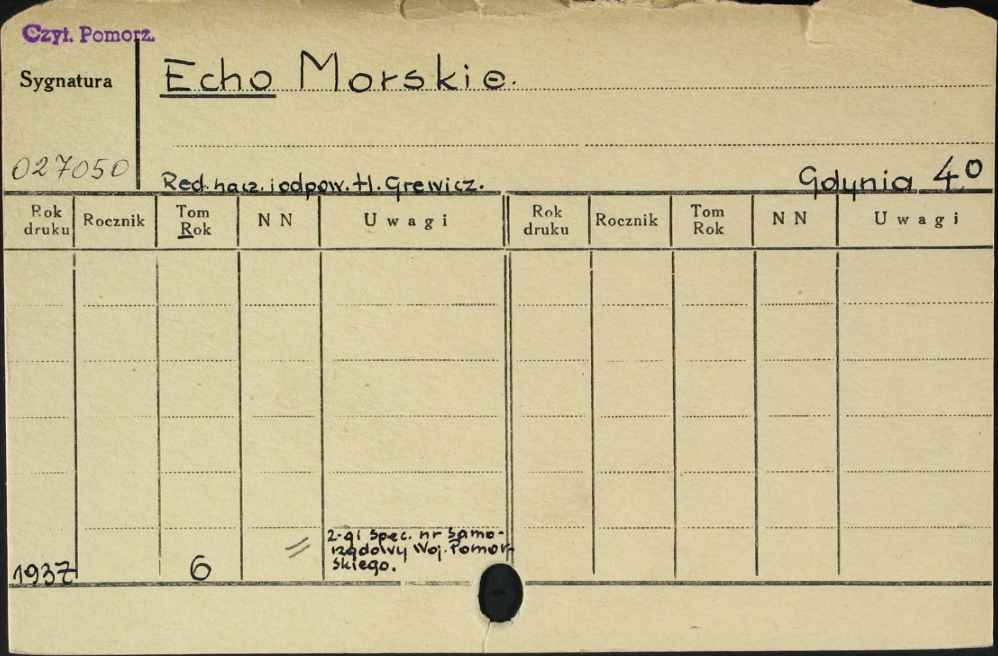 Czyt. Pomorz.
Sygnatura
Echo Morskie.
027050
Red. nacz. i odpow. H. Grewicz.
Gdynia 4°
Rok druku Rocznik Tom Rok NN Uwagi Rok druku Rocznik Tom Rok NN Uwagi
2-gi spec. nr Samo-
rządowy Woj. Pomor-
skiego.
1937 6